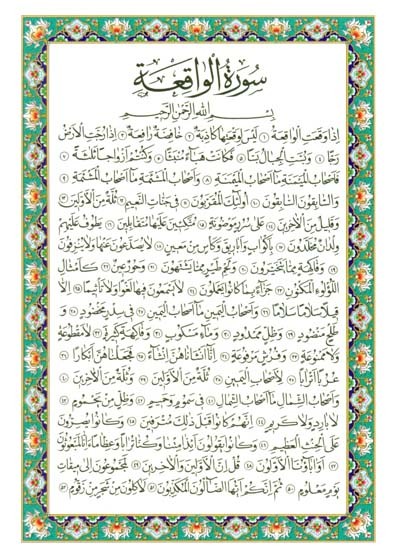 سُورَةُ الْوَاقِعَةِ
بِسْمِ اللهِ الرَّحْمٰنِ الرَّحِيمِ
إِذَا وَقَعَتِ الْوَاقِعَةُ ١ لَيْسَ لِوَقْعَتِهَا كَاذِبَةٌ ٢ خَافِضَةٌ رَافِعَةٌ ٣ إِذَا رُجَّتِ الْأَرْضُ
رَجًّا ٤ وَبُسَّتِ الْجِبَالُ بَسًّا ٥ فَكَانَتْ هَبَاءً مُنْبَثًّا ٦ وَكُنْتُمْ أَزْوَاجًا ثَلَاثَةً ٧
فَأَصْحَابُ الْمَيْمَنَةِ مَا أَصْحَابُ الْمَيْمَنَةِ ٨ وَأَصْحَابُ الْمَشْئَمَةِ مَا أَصْحَابُ الْمَشْئَمَةِ ٩
وَالسَّابِقُونَ السَّابِقُونَ ١٠ أُولَٰئِكَ الْمُقَرَّبُونَ ١١ فِي جَنَّاتِ النَّعِيمِ ١٢ ثُلَّةٌ مِنَ الْأَوَّلِينَ ١٣
وَقَلِيلٌ مِنَ الْآخِرِينَ ١٤ عَلَىٰ سُرُرٍ مَوْضُونَةٍ ١٥ مُتَّكِئِينَ عَلَيْهَا مُتَقَابِلِينَ ١٦ يَطُوفُ عَلَيْهِمْ
وِلْدَانٌ مُخَلَّدُونَ ١٧ بِأَكْوَابٍ وَأَبَارِيقَ وَكَأْسٍ مِنْ مَعِينٍ ١٨ لَا يُصَدَّعُونَ عَنْهَا وَلَا يُنْزِفُونَ
١٩ وَفَاكِهَةٍ مِمَّا يَتَخَيَّرُونَ ٢٠ وَلَحْمِ طَيْرٍ مِمَّا يَشْتَهُونَ ٢١ وَحُورٌ عِينٌ ٢٢ كَأَمْثَالِ
اللُّؤْلُؤِ الْمَكْنُونِ ٢٣ جَزَاءً بِمَا كَانُوا يَعْمَلُونَ ٢٤ لَا يَسْمَعُونَ فِيهَا لَغْوًا وَلَا تَأْثِيمًا ٢٥ إِلَّا
قِيلًا سَلَامًا سَلَامًا ٢٦ وَأَصْحَابُ الْيَمِينِ مَا أَصْحَابُ الْيَمِينِ ٢٧ فِي سِدْرٍ مَخْضُودٍ ٢٨ وَ
طَلْحٍ مَنْضُودٍ ٢٩ وَظِلٍّ مَمْدُودٍ ٣٠ وَمَاءٍ مَسْكُوبٍ ٣١ وَفَاكِهَةٍ كَثِيرَةٍ ٣٢ لَا مَقْطُوعَةٍ
وَلَا مَمْنُوعَةٍ ٣٣ وَفُرُشٍ مَرْفُوعَةٍ ٣٤ إِنَّا أَنْشَأْنَاهُنَّ إِنْشَاءً ٣٥ فَجَعَلْنَاهُنَّ أَبْكَارًا ٣٦
عُرُبًا أَتْرَابًا ٣٧ لِأَصْحَابِ الْيَمِينِ ٣٨ ثُلَّةٌ مِنَ الْأَوَّلِينَ ٣٩ وَثُلَّةٌ مِنَ الْآخِرِينَ ٤٠
وَأَصْحَابُ الشِّمَالِ مَا أَصْحَابُ الشِّمَالِ ٤١ فِي سَمُومٍ وَحَمِيمٍ ٤٢ وَظِلٍّ مِنْ يَحْمُومٍ ٤٣
لَا بَارِدٍ وَلَا كَرِيمٍ ٤٤ إِنَّهُمْ كَانُوا قَبْلَ ذَٰلِكَ مُتْرَفِينَ ٤٥ وَكَانُوا يُصِرُّونَ
عَلَى الْحِنْثِ الْعَظِيمِ ٤٦ وَكَانُوا يَقُولُونَ أَئِذَا مِتْنَا وَكُنَّا تُرَابًا وَعِظَامًا أَئِنَّا لَمَبْعُوثُونَ
٤٧ أَوَآبَاؤُنَا الْأَوَّلُونَ ٤٨ قُلْ إِنَّ الْأَوَّلِينَ وَالْآخِرِينَ ٤٩ لَمَجْمُوعُونَ إِلَىٰ مِيقَاتِ
يَوْمٍ مَعْلُومٍ ٥٠ ثُمَّ إِنَّكُمْ أَيُّهَا الضَّالُّونَ الْمُكَذِّبُونَ ٥١ لَآكِلُونَ مِنْ شَجَرٍ مِنْ زَقُّومٍ ٥٢